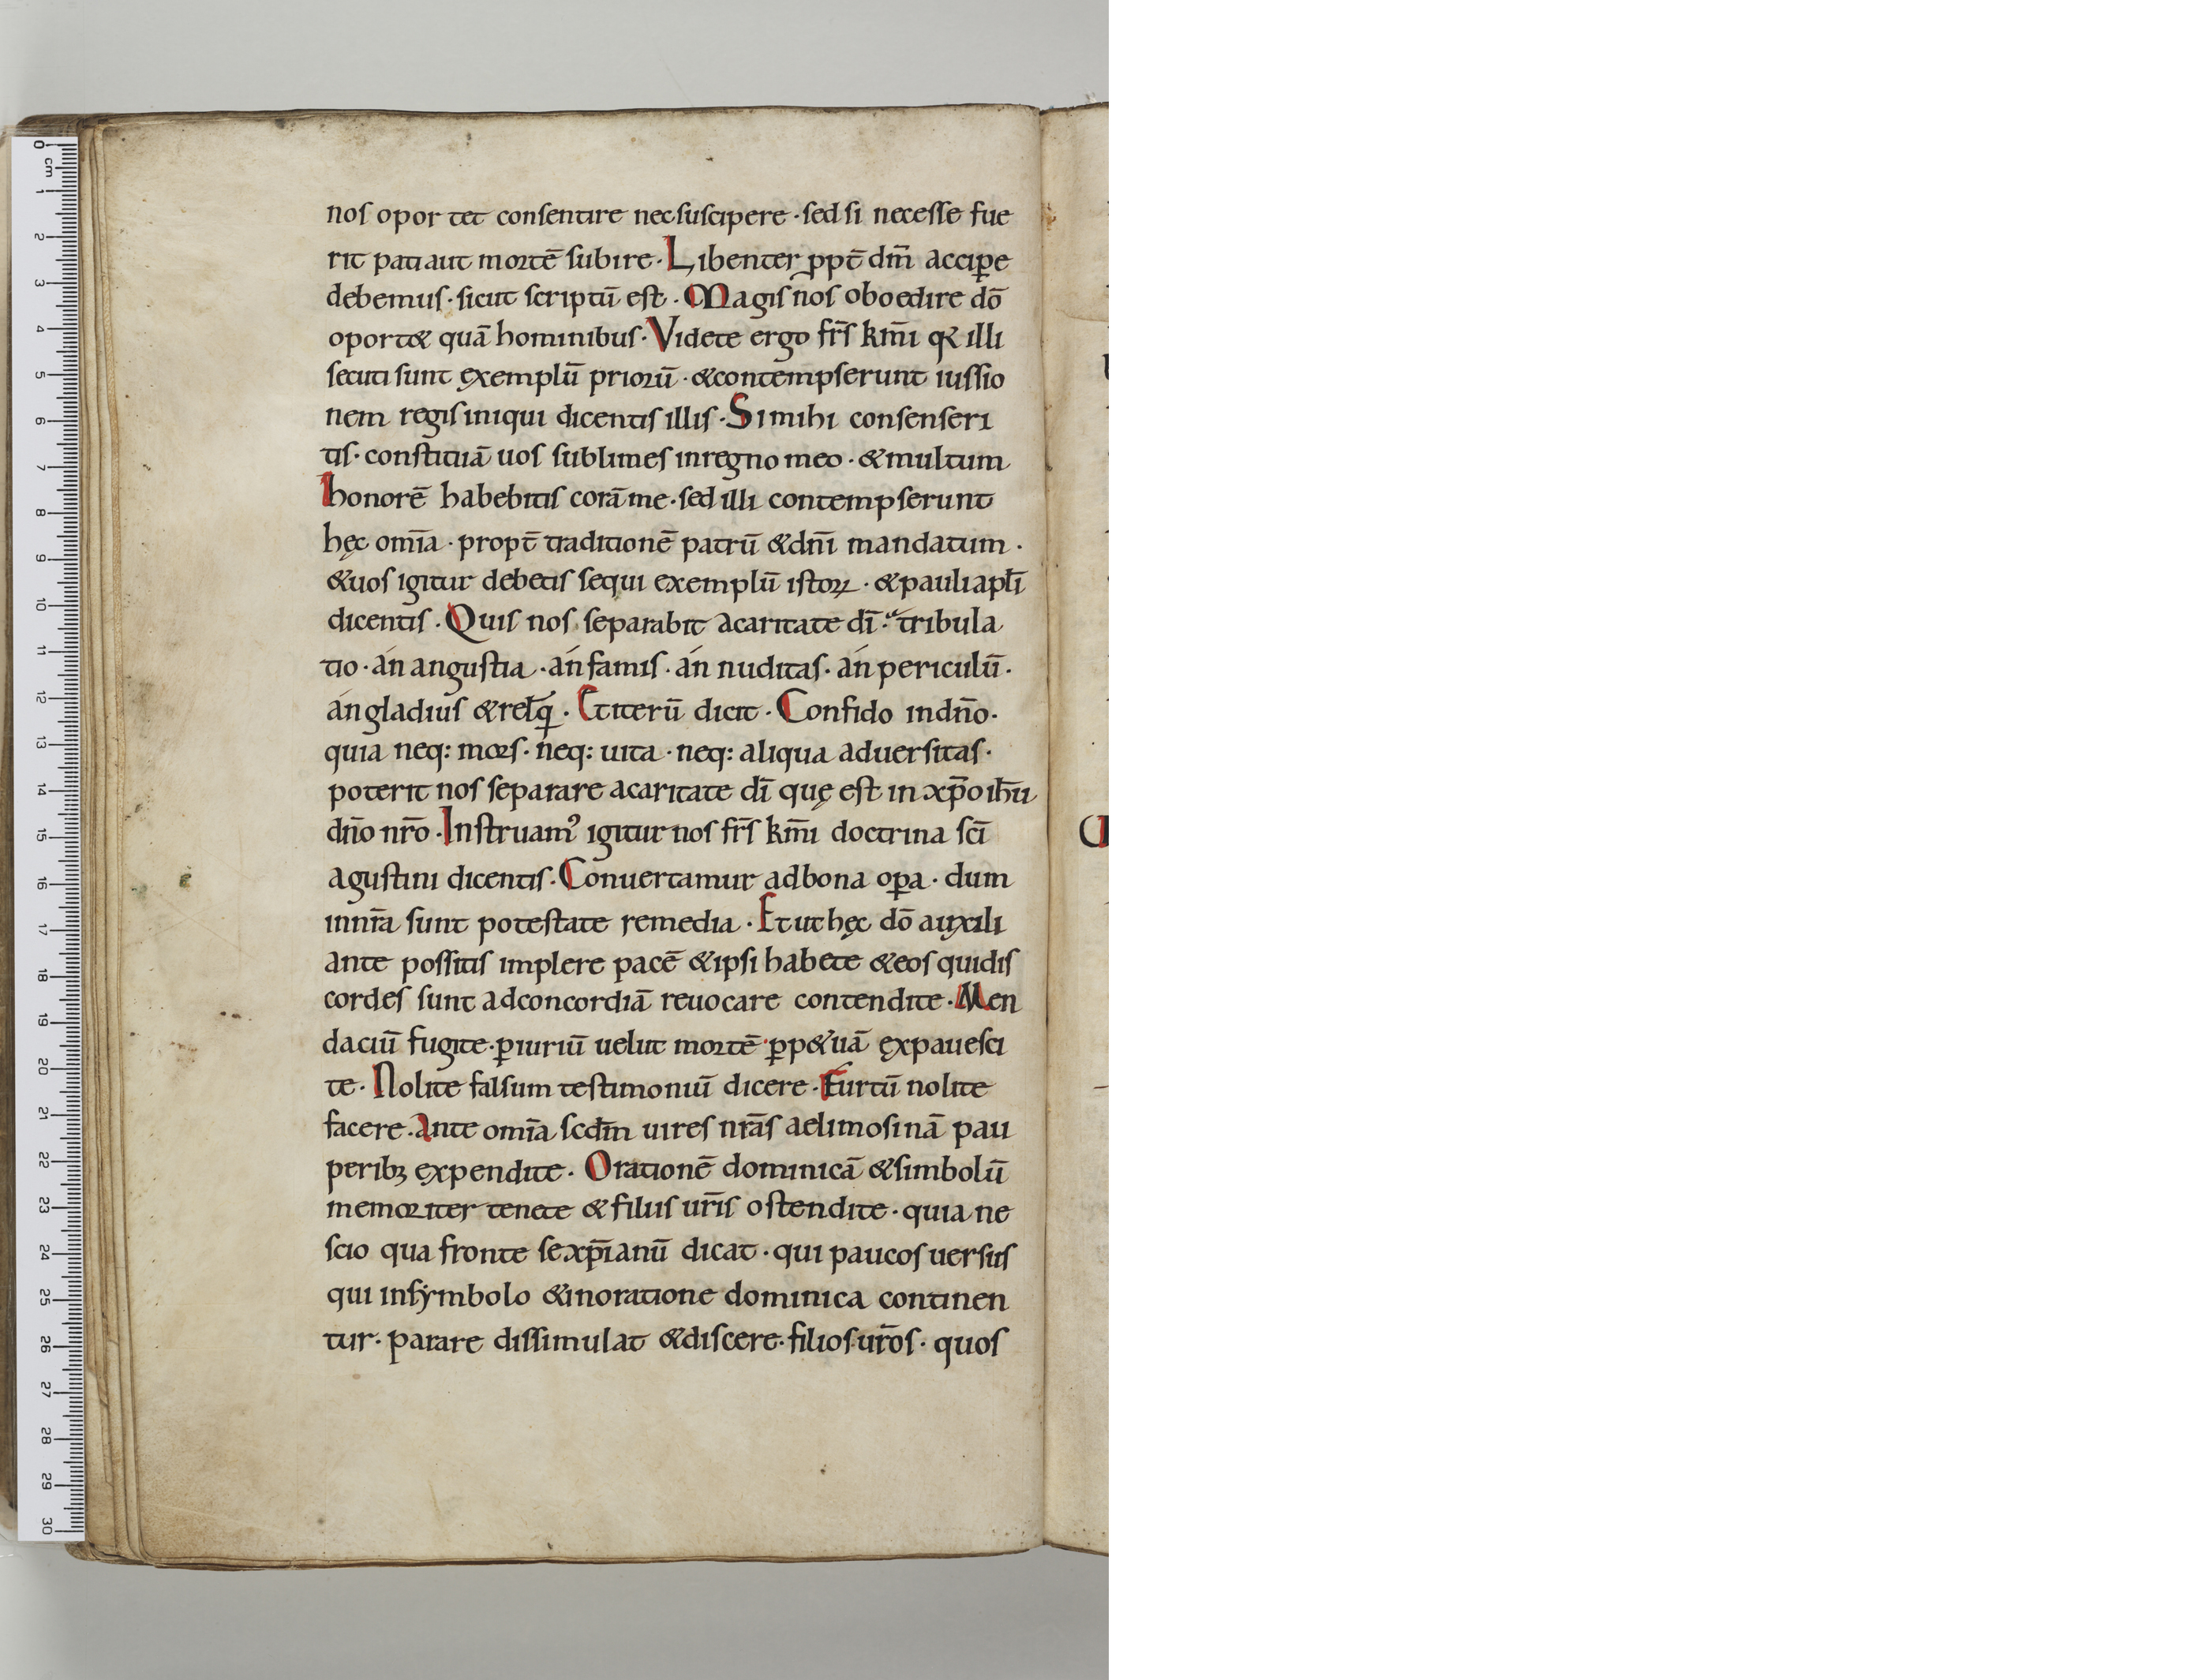 nos opor tet consentire necsuscipere · sed si necesse fue
rit pati aut mortē subire · Libenter ꝓpt̄ dm̄ acciꝑe
debemus · sicut scriptū est · Magis nos oboedire dō
oport& quā hominibus · Videte ergo fr̄s km̄i qꝛ illi
secuti sunt ęxemplū priorū · &contempserunt iussio
nem regis iniqui dicentis illis · Si mihi consenseri
tis · constituā uos sublimes inregno meo · &multum
honorē habebitis corā me · sed illi contempserunt
hęc om̄ia · propt̄ traditionē patrū &dn̄i mandatum ·
&uos igitur debetis sequi exemplū istoꝝ · &pauli apl̄i
dicentis · Quis nos separabit acaritate dī · tribula
tio · án angustia · án famis · án nuditas · án periculū ·
án gladius &relq̄ · Et iterū dicit · Confido indn̄o ·
quia neq: mors · neq: uita · neq: aliqua aduersitas ·
poterit nos separare acaritate dī quę est in xp̄o ih̄u
dn̄o nr̄o · Instruamꝰ igitur nos fr̄s km̄i doctrina sc̄i
agustini dicentis · Conuertamur adbona oꝑa · dum
innr̄a sunt potestate remedia · Et ut hęc dō auxili
ante possitis implere pacē &ipsi habete &eos quidis
cordes sunt adconcordiā reuocare contendite · Men
daciū fugite · ꝑiuriū uelut mortē ꝑp&uā ęxpauesci
te · Nolite falsum testimoniū dicere · Furtū nolite
facere · Ante om̄ia scd̄m uires nr̄as aelimosinā pau
peribꝫ ęxpendite · Orationē dominicā &simbolū
memoriter tenete & filiis ur̄is ostendite · quia ne
scio qua fronte se xp̄ianū dicat · qui paucos uersus
qui insẏmbolo &inoratione dominica continen
tur · parare dissimulat &discere · filios ur̄os · quos